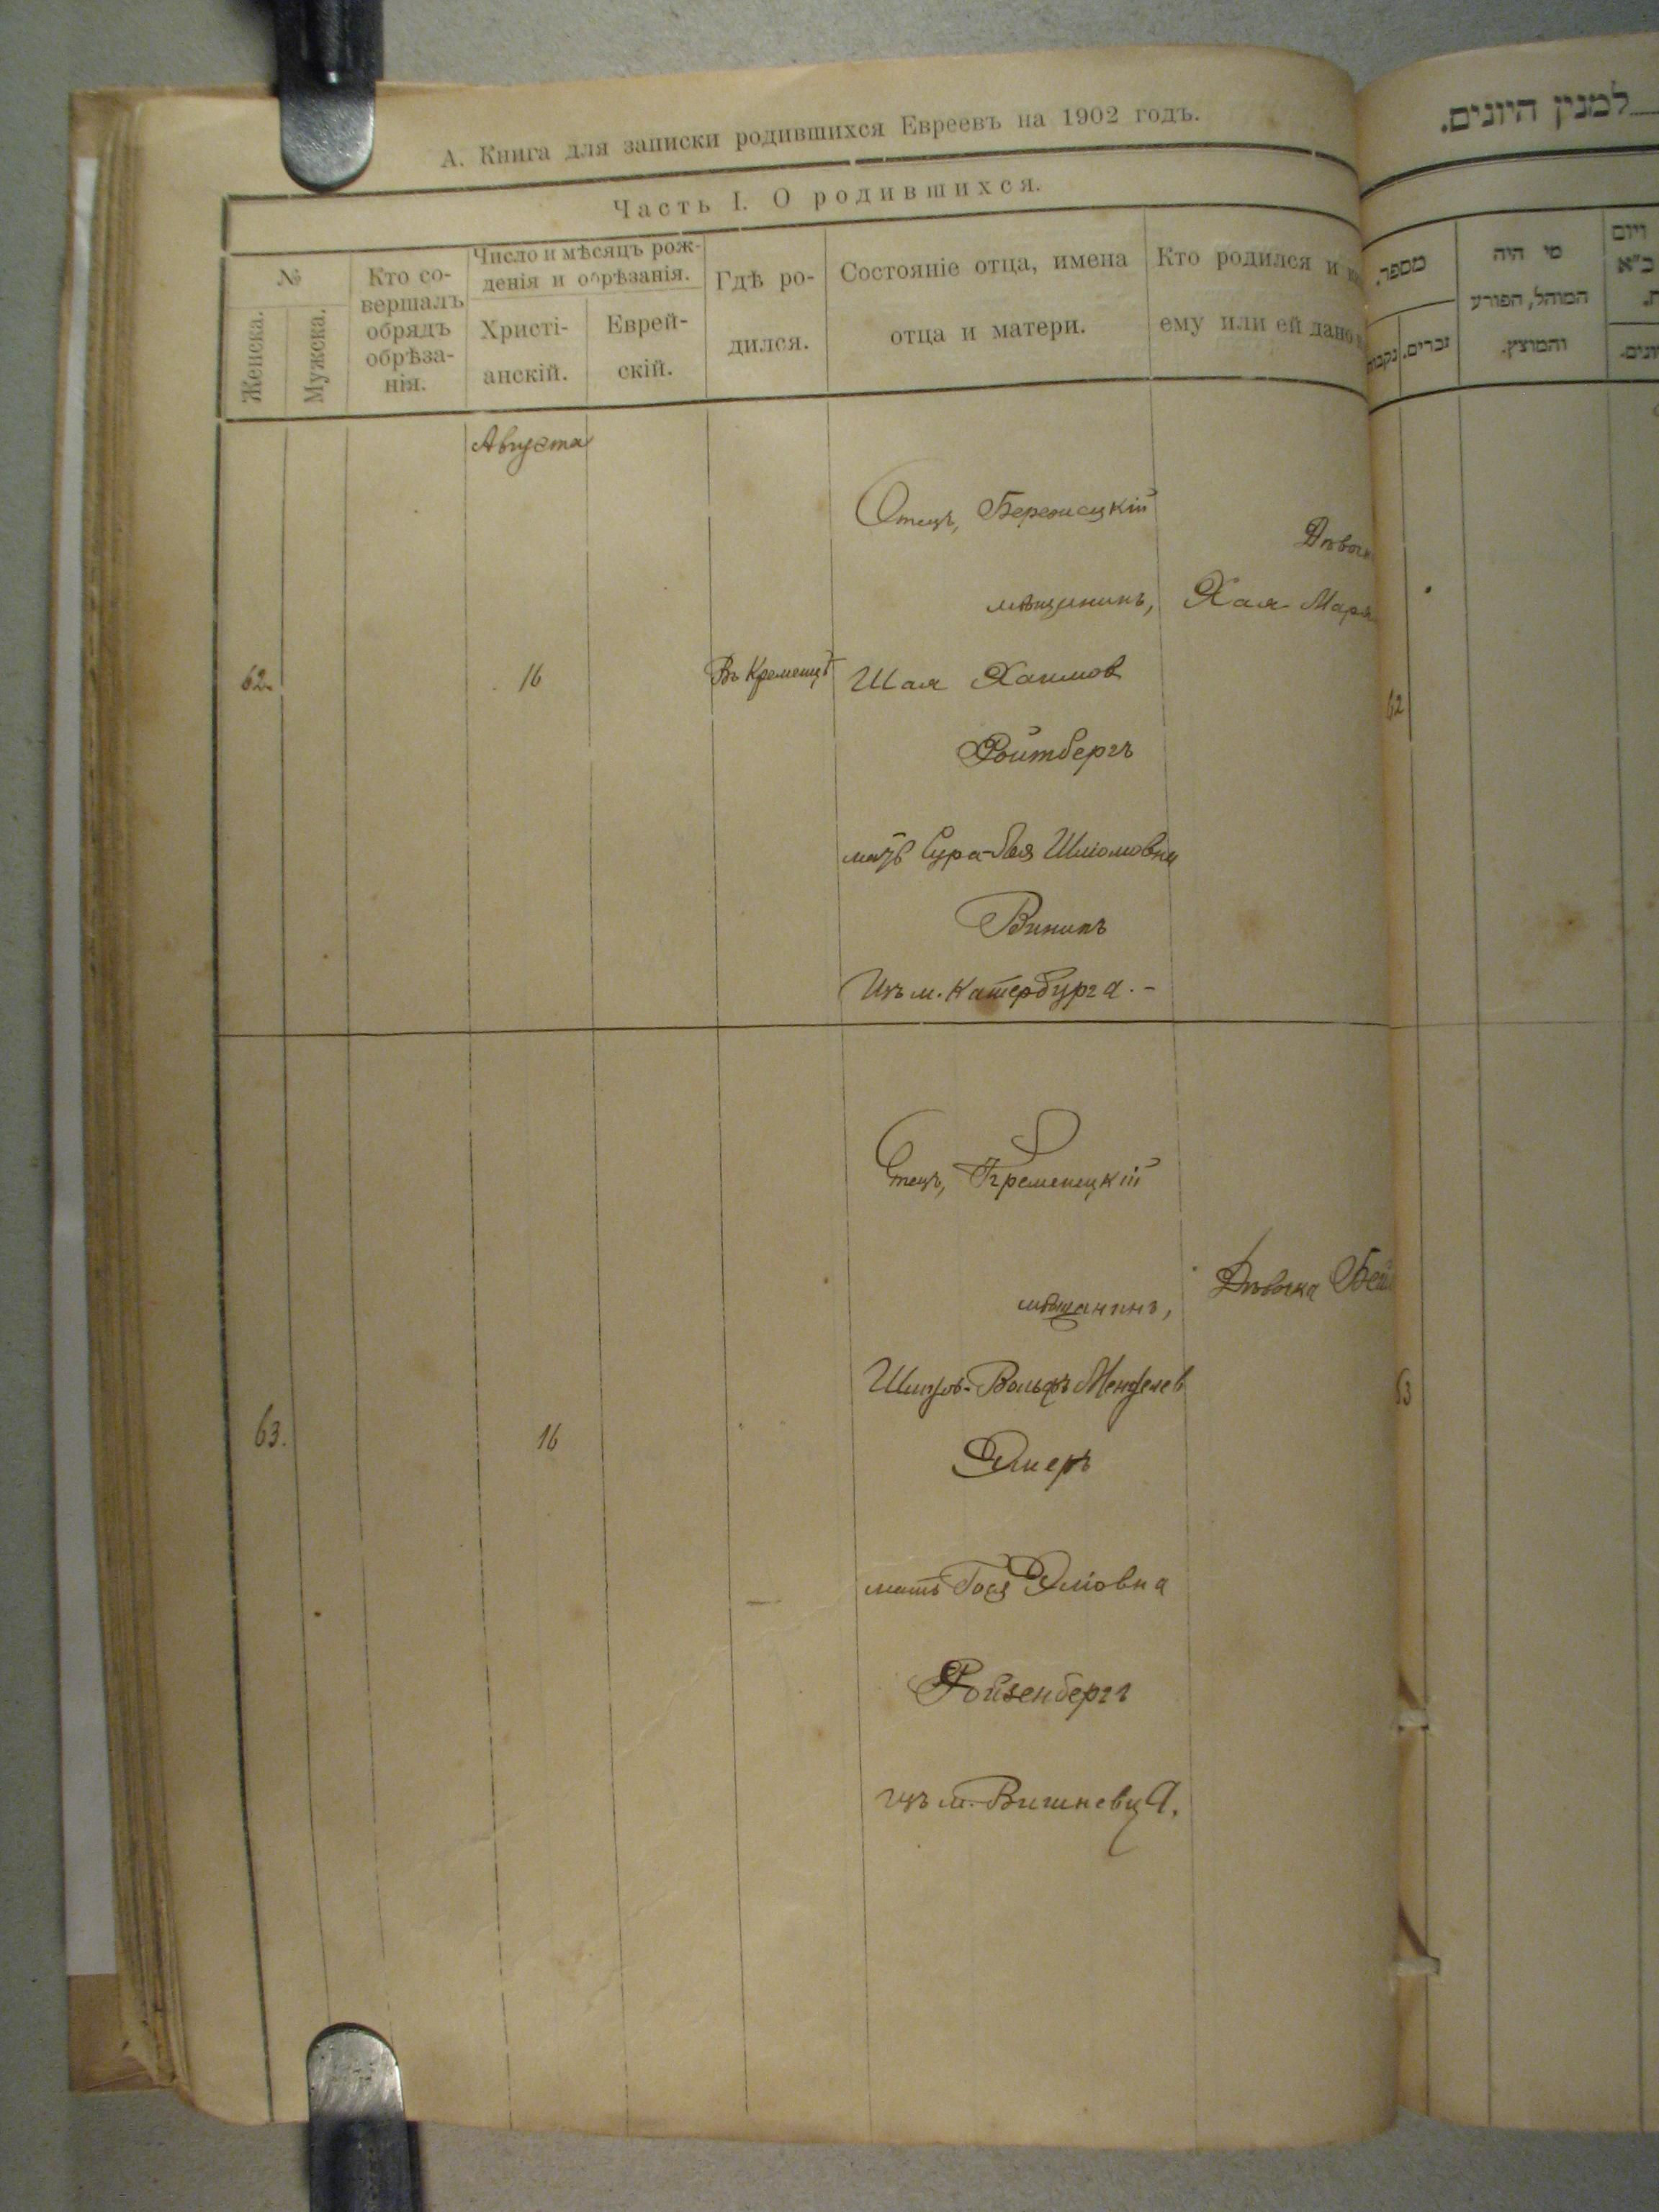 А. Книга для записки родившихся Евреевъ на 1902 годъ.
Часть I. О родившихся.
№
Женска.
Мужска.
Кто со-
вершалъ
обрядъ
обрѣза-
нія.
Число и мѣсяцъ рож-
денія и обрѣзанія.
Христі-
анскій.
Еврей-
скій.
Гдѣ ро-
дился.
Состояніе отца, имена
отца и матери.
Кто родился и
ему или ей дано
Августа
62.
16
Въ Кременцѣ
Отецъ, Бережецкій
мѣщанинъ,
Шая Хаимов
Ройтбергъ
мать Сура-Бая Шліомовна
Виникъ
Изъ м. Катербурга.-
Хая Марья
63.
16
Отецъ, Кременецкій
мѣщанинъ,
Вольфъ Менделев
мать Гося
Ройзенбергъ
изъ м. Вишневца.
Дѣвочка
למנין היונים.
מספר.
זכרים.
מי היה
המוהל, הפורע
והמוצץ.
ויום
62
63